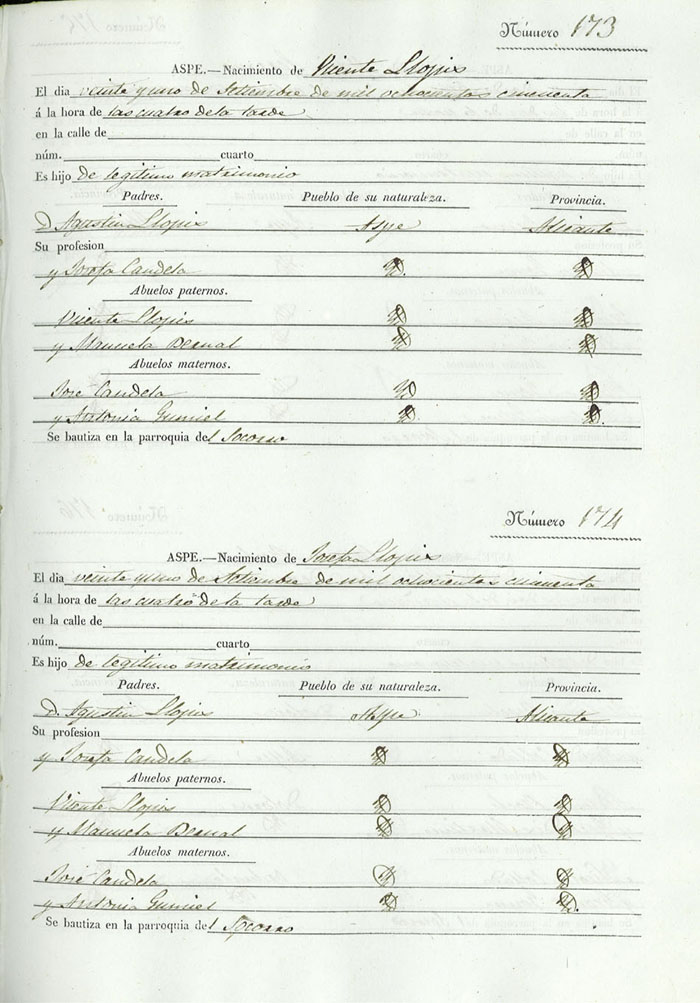 Número 173
ASPE.—Nacimiento de Vicente Llopis
El dia veinte y uno de Setiembre de mil ochocientos cincuenta
á la hora de las cuatro de la tarde
en la calle de
núm. cuarto
Es hijo de legitimo matrimonio
Padres. Pueblo de su naturaleza. Provincia.
D. Agustin Llopis Aspe Alicante
Su profesion
y Josefa Candela
Abuelos paternos.
Vicente Llopis
y Manuela Bernal
Abuelos maternos.
Jose Candela
y Antonia Gumiel
Se bautiza en la parroquia del Socorro
Número 174
ASPE.—Nacimiento de Josefa Llopis
El dia veinte y uno de Setiembre de mil ochocientos cincuenta
á la hora de las cuatro de la tarde
en la calle de
núm. cuarto
Es hijo de legitimo matrimonio
Padres. Pueblo de su naturaleza. Provincia.
D. Agustin Llopis Aspe Alicante
Su profesion
y Josefa Candela
Abuelos paternos.
Vicente Llopis
y Manuela Bernal
Abuelos maternos.
José Candela
y Antonia Gumiel
Se bautiza en la parroquia del Socorro